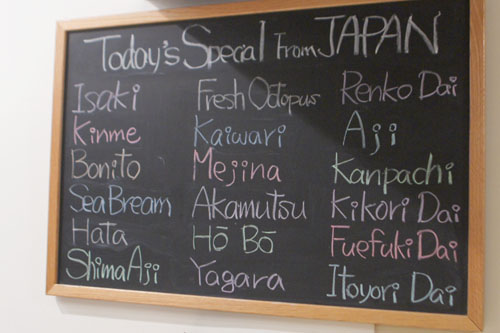 Today's Special From JAPAN
Isaki Fresh Octopus Renko Dai
Kinme Kaiwari Aji
Bonito Mejina Kanpachi
Sea Bream Akamutsu Kikori Dai
Hata Hō Bō Fuefuki Dai
Shima Aji Yagara Itoyori Dai